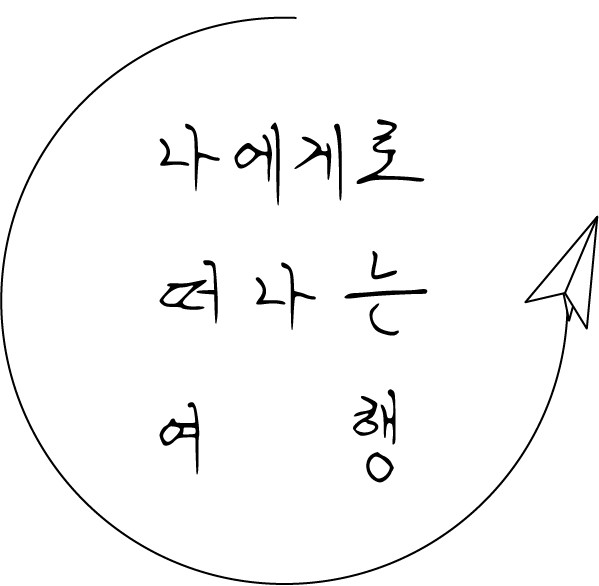 나에게로
떠나는
여 행